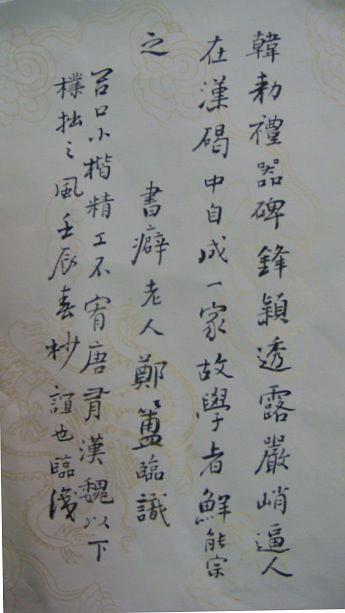 韓勅禮器碑鋒穎透露嚴峭逼人
在漢碣中自成一家故學者鮮能宗
之
書癖老人鄭簠臨識
呂口小楷精工不宥唐肎漢魏以下
樸拙之風壬辰春杪誼也臨濩